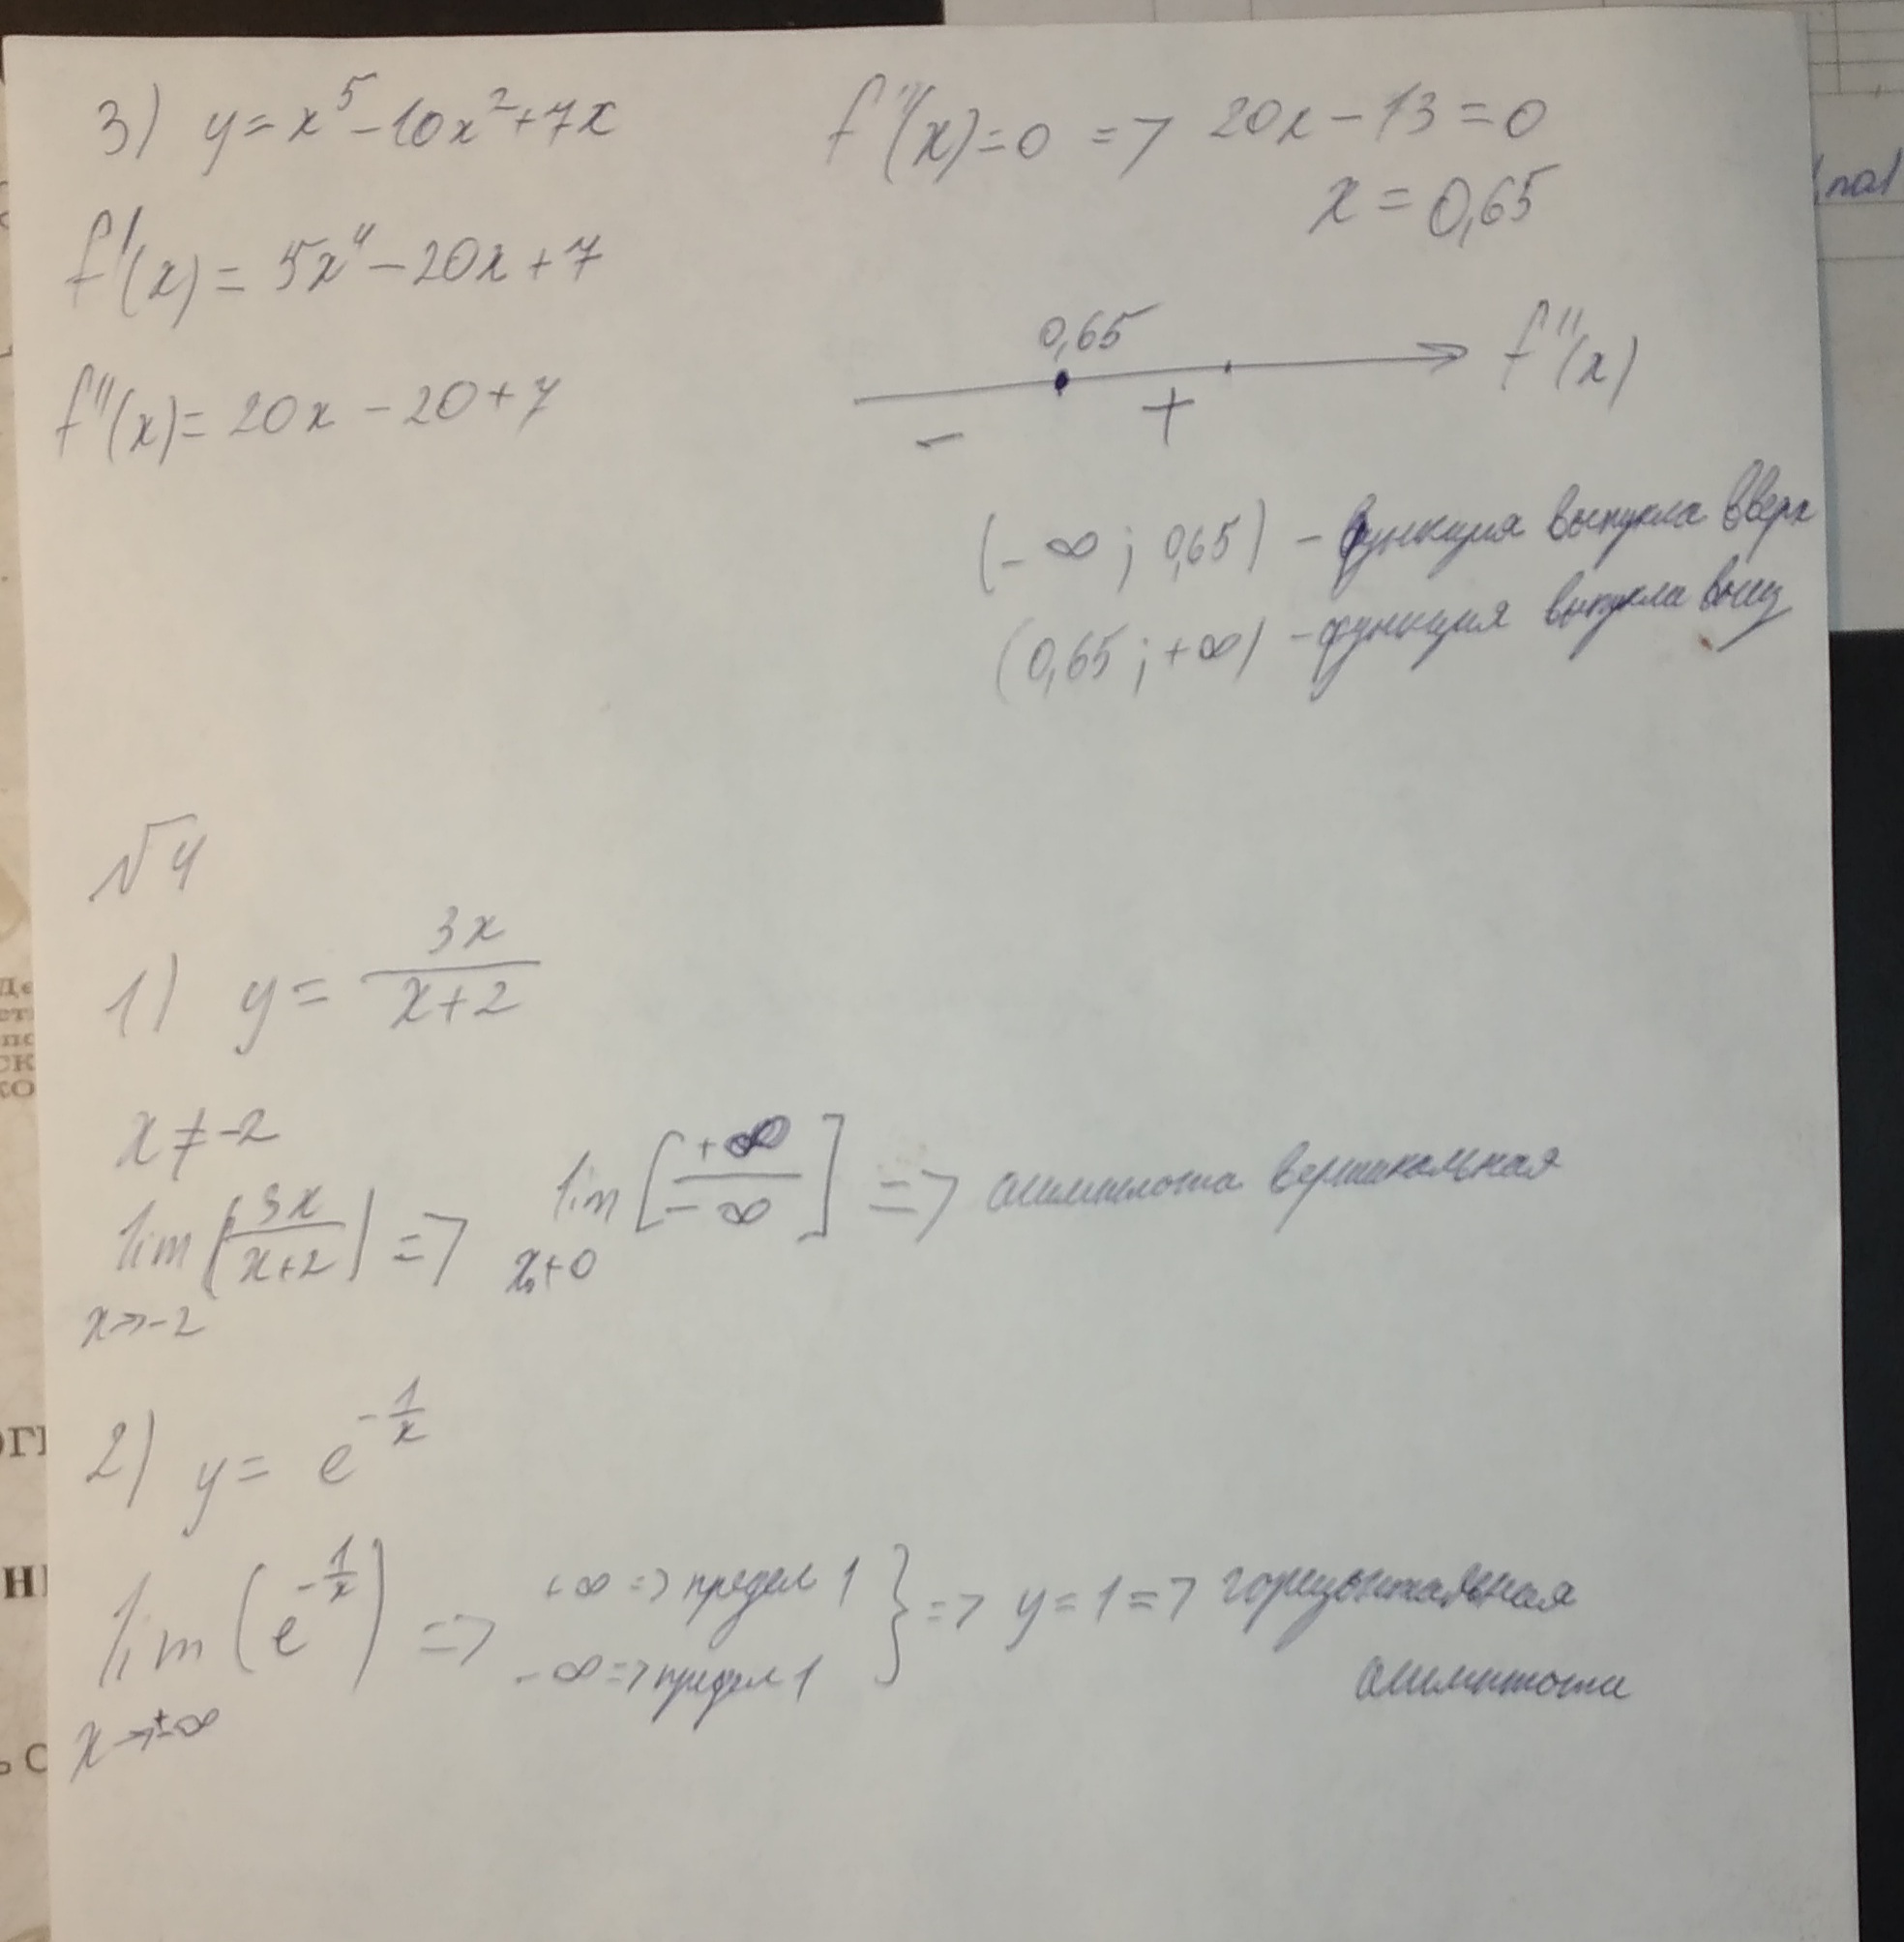 3) y = x⁵ - 10x² + 7x
f'(x) = 5x⁴ - 20x + 7
f''(x) = 20x - 20 + 7
f''(x) = 0 => 20x - 13 = 0
x = 0,65
0,65
f''(x)
- +
(-∞; 0,65) - функция выпукла вверх
(0,65; +∞) - функция выпукла вниз
№4
1) y = 3x/(x+2)
x ≠ -2
lim (3x/(x+2)) => lim [+∞/-∞] => асимптота вертикальная
x→-2
2) y = e^(-1/x)
lim (e^(-1/x)) => +∞ => предел 1 } => y = 1 => горизонтальная
-∞ => предел 1 асимптота
x→±∞
Де
ст
по
СК
КО
ОГ
Н
ь С